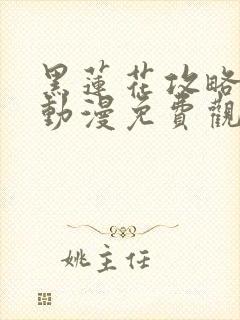 黑蓮花攻略
動漫免費觀
姚主任